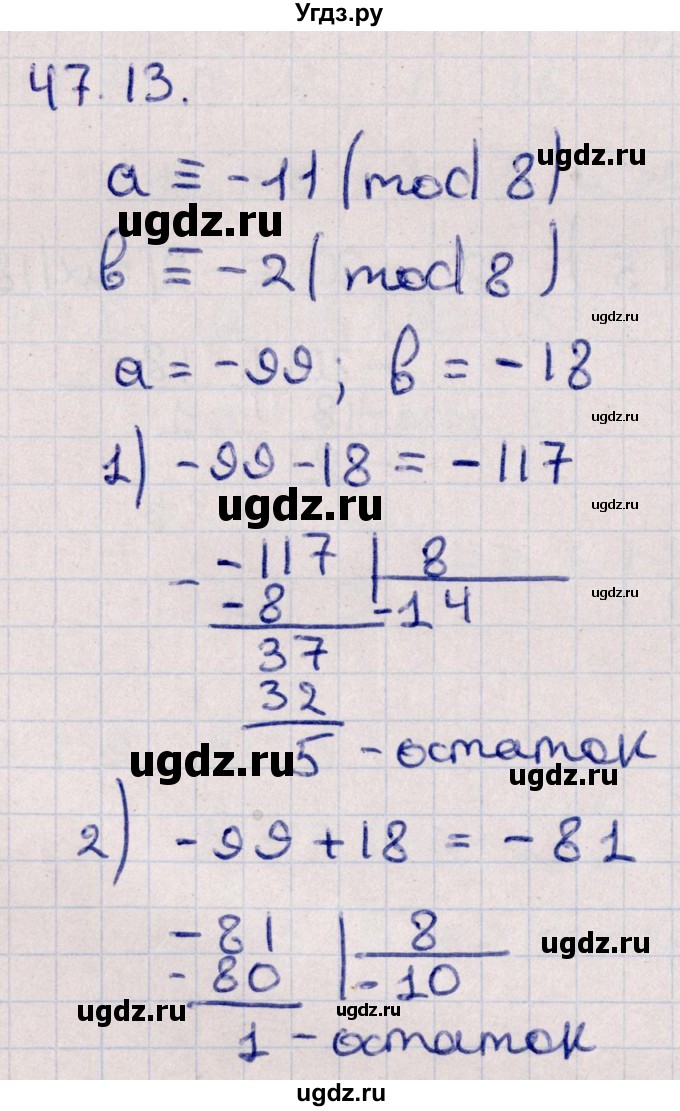 Угдз.ру
47.13.
a ≡ -11 (mod 8)
ugdz.ru
ugdz.ru
b ≡ -2 (mod 8)
ugdz.ru
a = -99; b = -18
ugdz.ru
1) -99 - 18 = -117
ugdz.ru
ugdz.ru
- -117 | 8
ugdz.ru
-8 -14
37
32
5 - остаток
ugdz.ru
ugdz.ru
2) -99 + 18 = -81
-81 | 8
ugdz.ru
-80 -10
ugdz.ru
1 - остаток
ugdz.ru
ugdz.ru